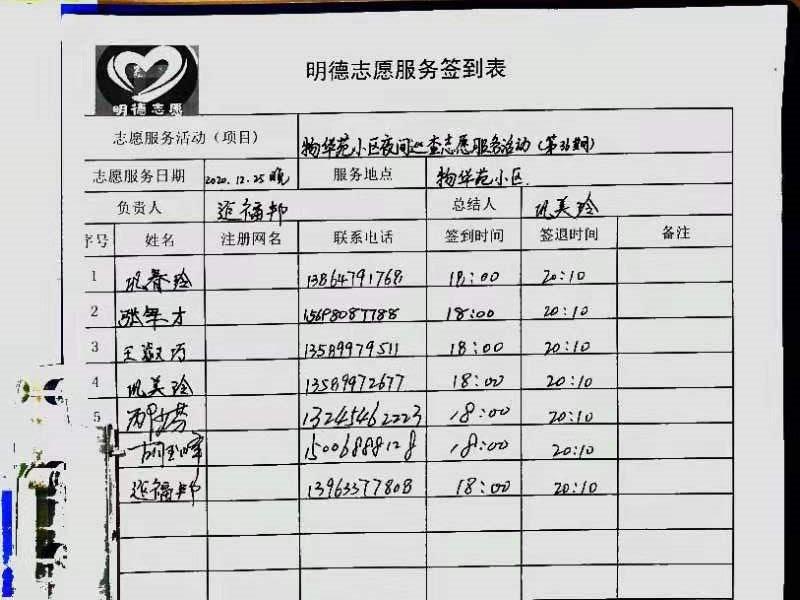 明德志愿服务签到表
明德志愿
志愿服务活动（项目） 物华苑小区夜间巡查志愿服务活动（第36期）
志愿服务日期 2020.12.25晚 服务地点 物华苑小区
负责人 迟福邦 总结人 巩美玲
序号 姓名 注册网名 联系电话 签到时间 签退时间 备注
1 巩春玲 13864791768 18:00 20:10
2 张军才 18:00 20:10
3 王淑巧 13589979511 18:00 20:10
4 巩美玲 13589972677 18:00 20:10
5 13245462223 18:00 20:10
15006888128 18:00 20:10
迟福邦 13963377808 18:00 20:10